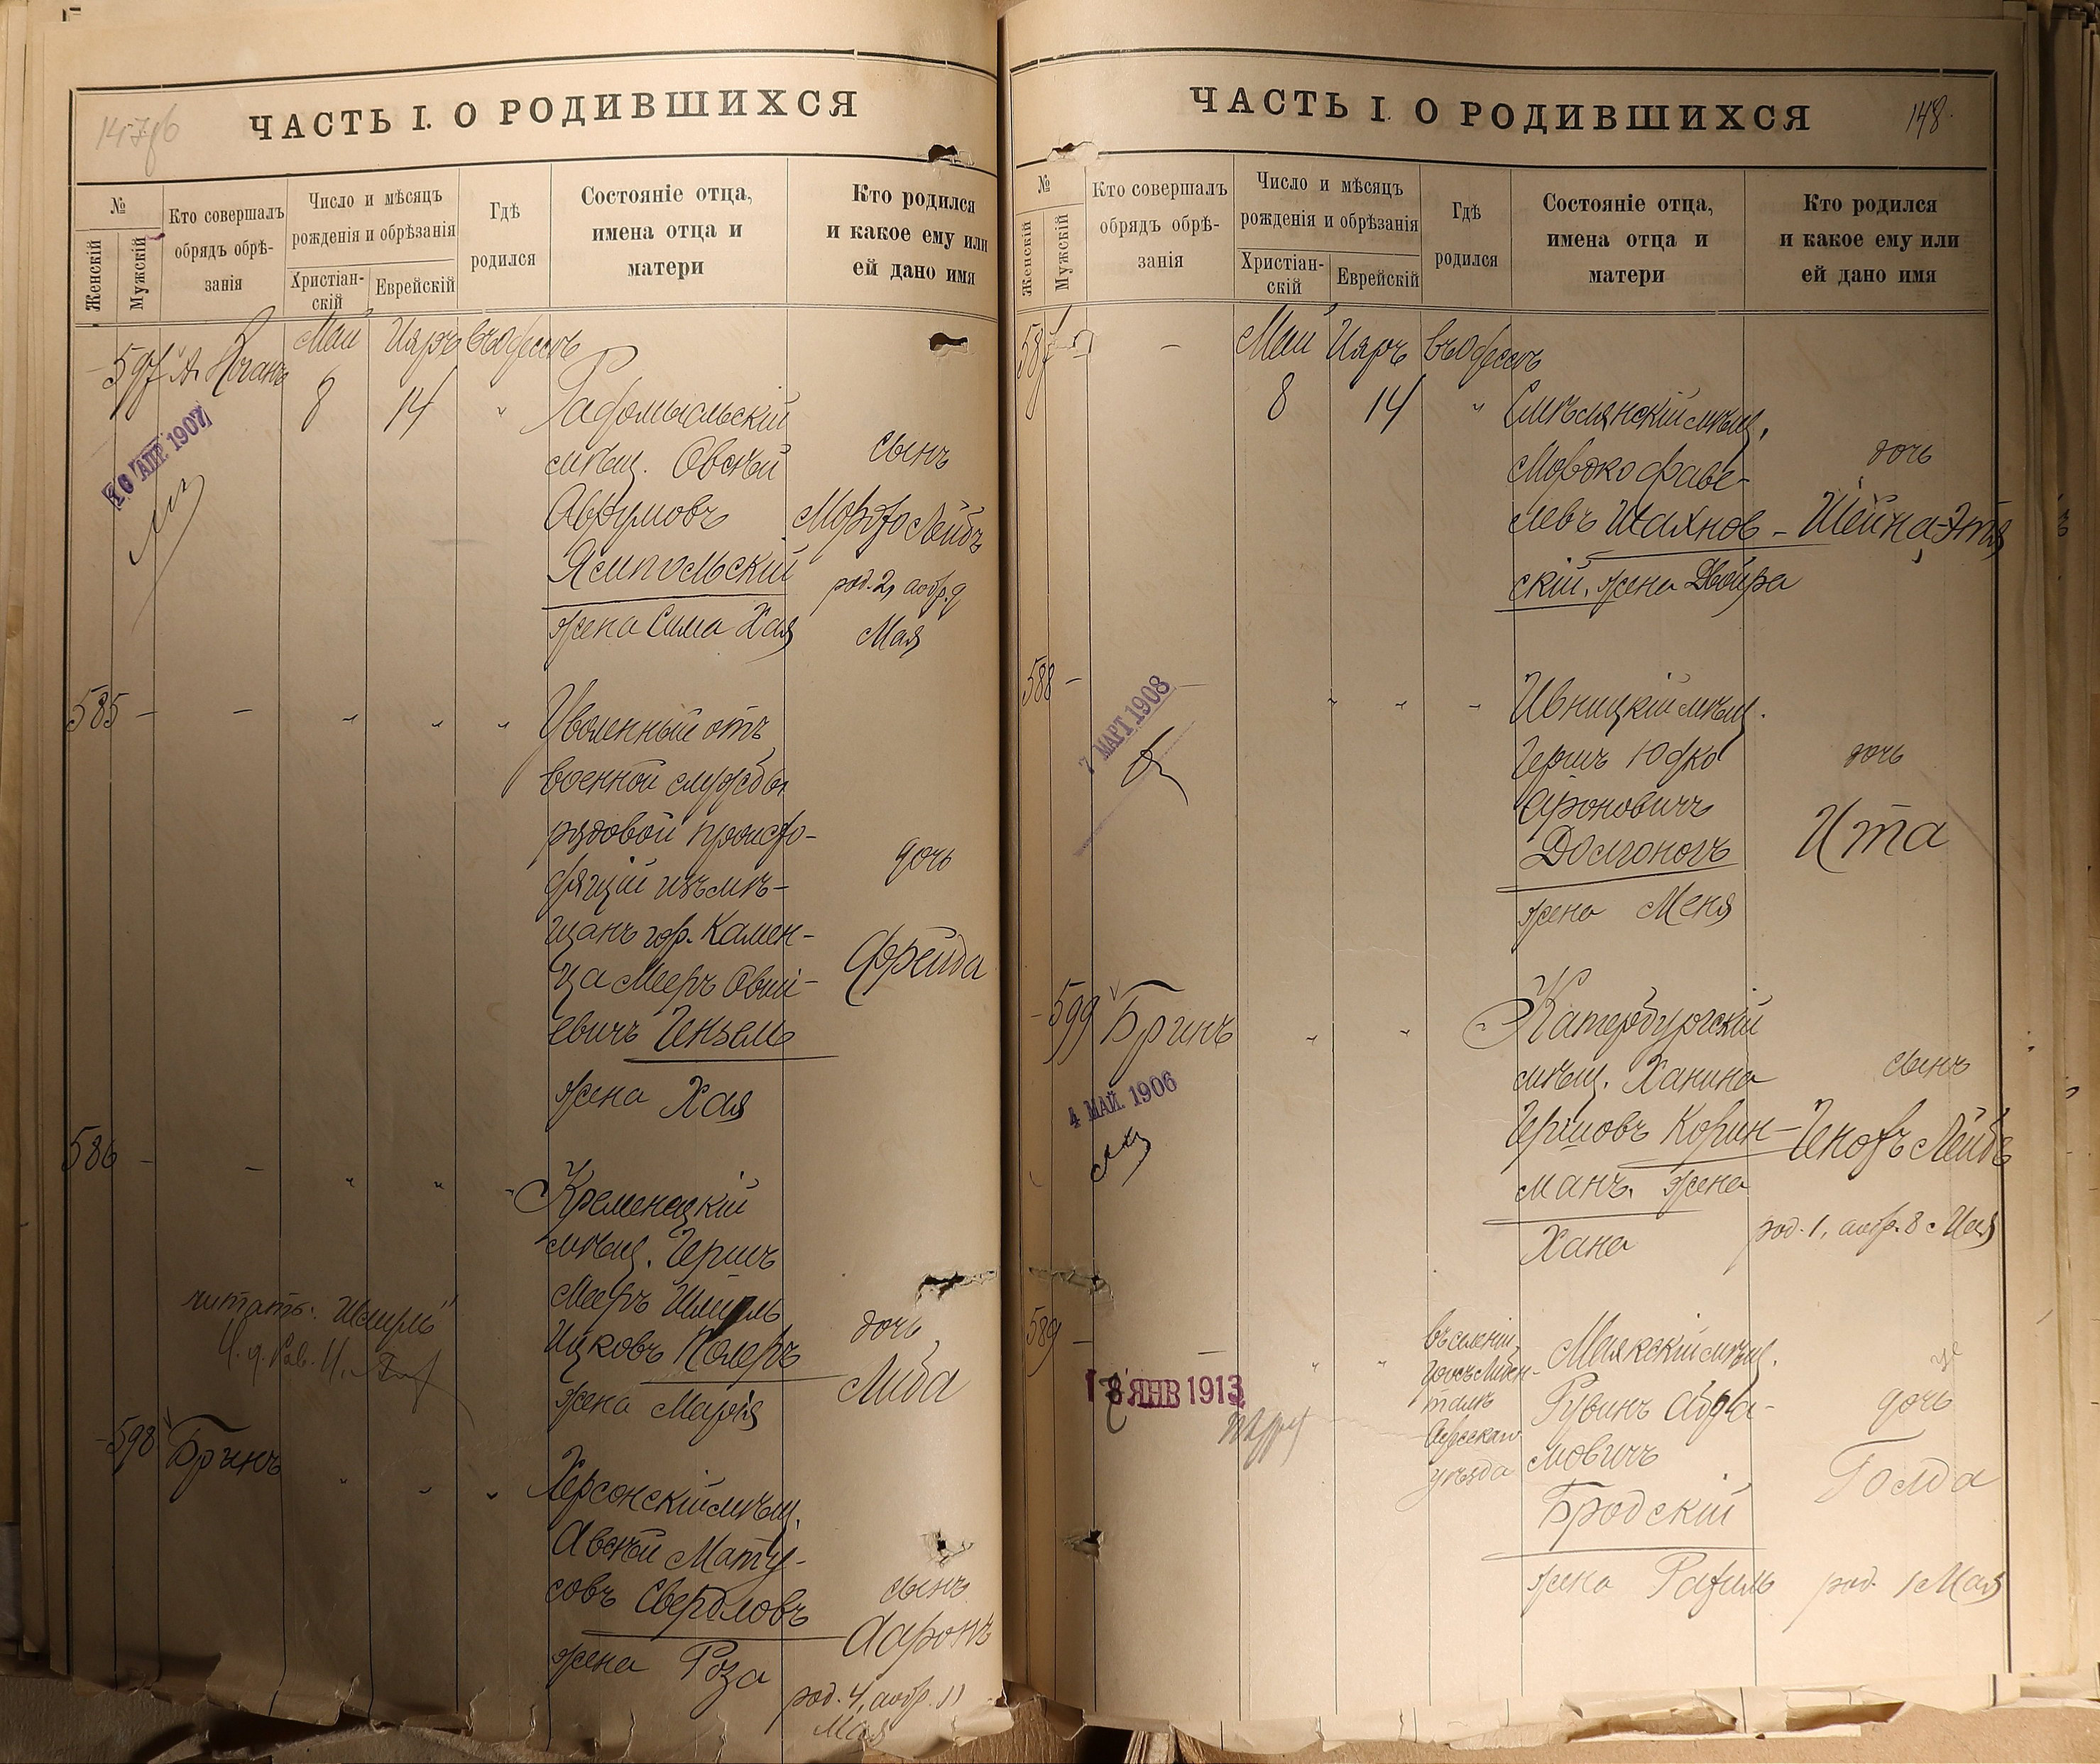 147об
ЧАСТЬ I. О РОДИВШИХСЯ
№
Женскій
Мужскій
Кто совершалъ
обрядъ обрѣ-
занія
Число и мѣсяцъ
рожденія и обрѣзанія
Христіан-
скій
Еврейскій
Гдѣ
родился
Состояніе отца,
имена отца и
матери
Кто родился
и какое ему или
ей дано имя
597 А. Коганъ
Май Іяръ въ Одессѣ
8 14 "
16 АПР. 1907
Радомысльскій
мѣщ. Овсѣй
Аврумовъ
Ямпольскій
жена Сима Хая
сынъ
Мордко Лейбъ
род. 2, а обр. 9
Мая
585 - - " " "
Уволенный отъ
военной службы
рядовой происхо-
дящій изъ мѣ-
щанъ гор. Камен-
ца Мееръ Овші-
евичъ Гензель
жена Хая
дочь
Фрейда
586 - - " " "
Кременецкій
мѣщ. Гершъ
Мееръ Шмиль
Ицковъ Колеръ
жена Марія
дочь
Либа
читать: "Шмуль"
598 Бринъ " " "
Херсонскій мѣщ.
Авсѣй Мату-
совъ Свердловъ
жена Роза
сынъ
Ааронъ
род. 4, а обр. 11
Мая
148
ЧАСТЬ I. О РОДИВШИХСЯ
№
Женскій
Мужскій
Кто совершалъ
обрядъ обрѣ-
занія
Число и мѣсяцъ
рожденія и обрѣзанія
Христіан-
скій
Еврейскій
Гдѣ
родился
Состояніе отца,
имена отца и
матери
Кто родился
и какое ему или
ей дано имя
587 - -
Май Іяръ въ Одессѣ
8 14 "
Смѣлянскій мѣщ.
Мовшко Фаве-
левъ Шахнов-
скій, жена Двойра
дочь
Шейна-Этя
588 - " " "
7 МАРТ 1908
Ивницкій мѣщ.
Гершъ Юдко
Ароновичъ
Долгоногъ
жена Меня
дочь
Ита
599 Бринъ " " "
4 МАЙ. 1906
Катербургскій
мѣщ. Ханина
Гершовъ Корин-
манъ. жена
Хана
сынъ
Генохъ Лейбъ
род. 1, а обр. 8 Мая
589 - - " "
18 ЯНВ 1913
въ селеніи
Гросъ Либен-
талѣ
Одесскаго
уѣзда
Маякскій мѣщ.
Рувинъ Абра-
мовичъ
Бродскій
жена Рахиль
дочь
Голда
род. 1 Мая